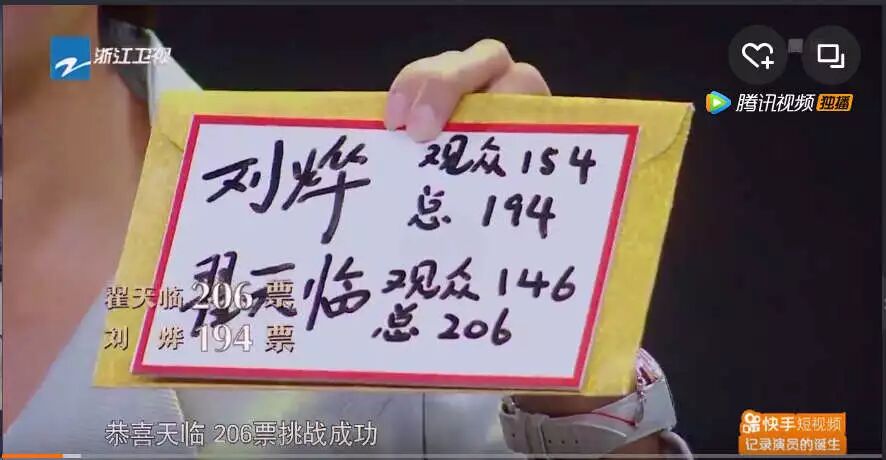 浙江卫视
腾讯视频 独播
刘烨 观众 154
总 194
翟天临 观众 146
总 206
翟天临 206 票
刘 烨 194 票
恭喜天临 206票挑战成功
快手短视频
记录演员的诞生